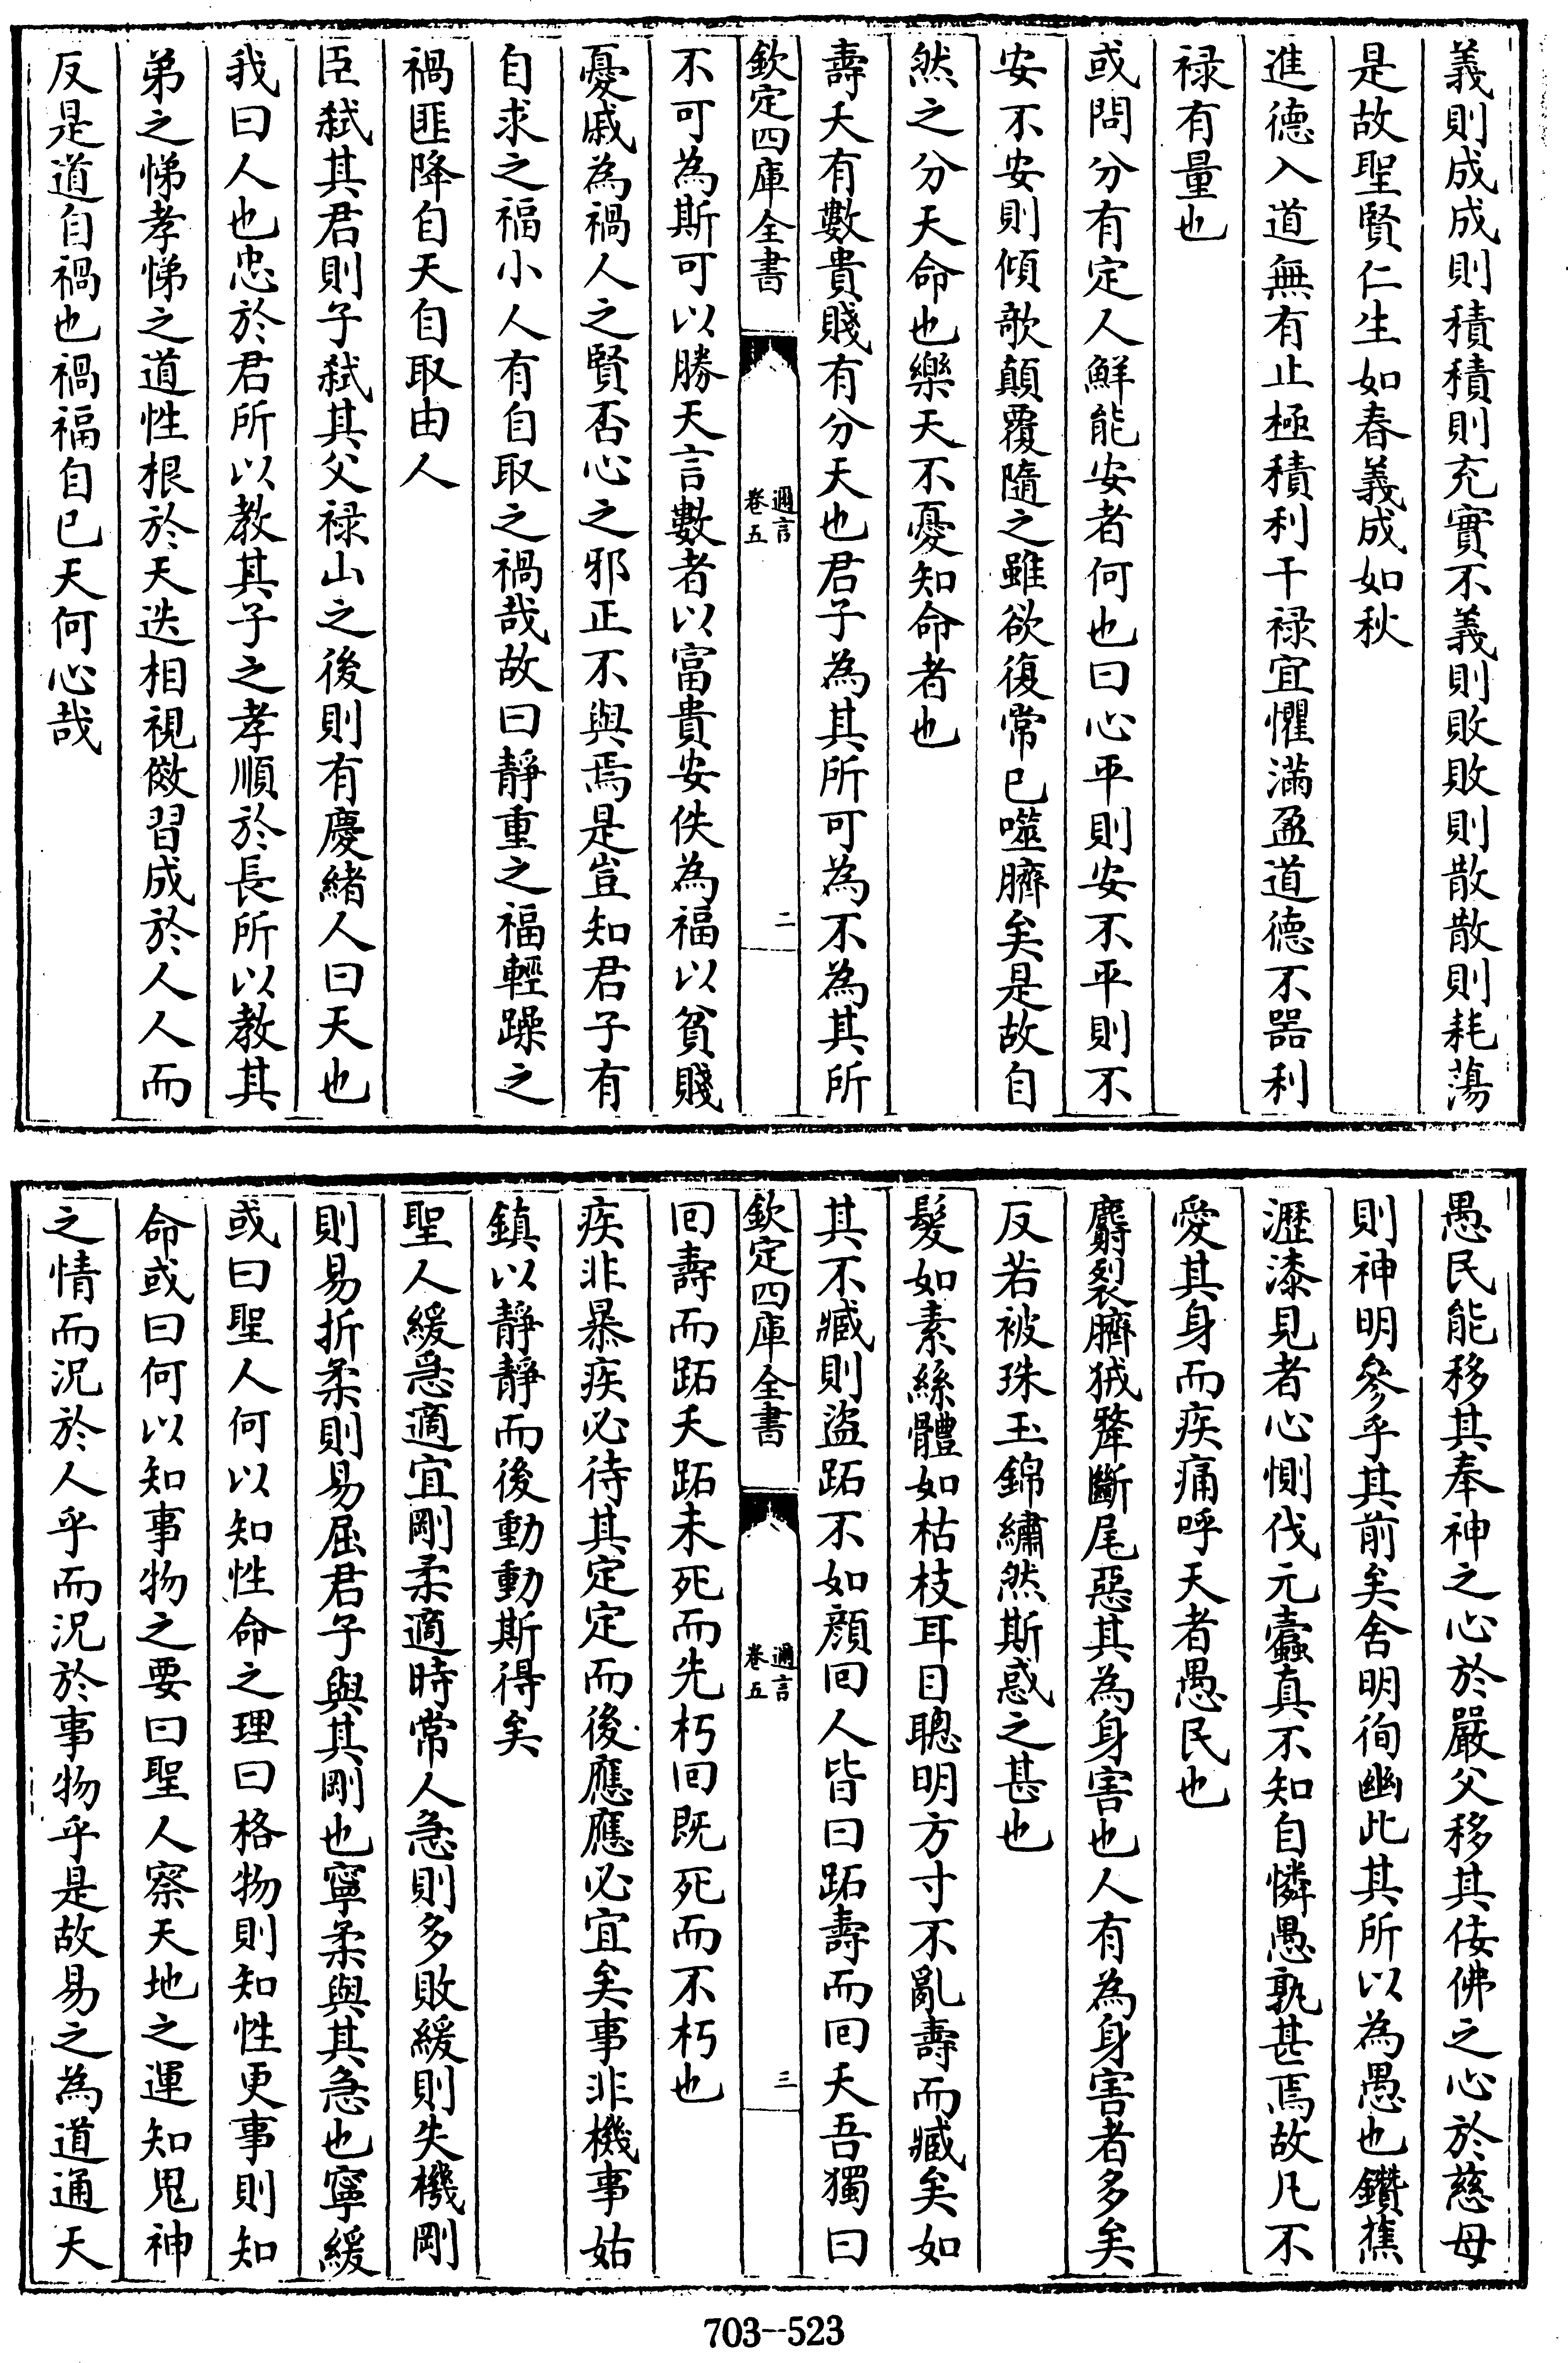 義則成成則積積則充實不義則敗敗則散散則耗蕩
是故聖賢仁生如春義成如秋
進德入道無有止極積利干禄宜懼滿盈道德不器利
禄有量也
或問分有定人鮮能安者何也曰心平則安不平則不
安不安則傾欹顛覆隨之雖欲復常已噬臍矣是故自
然之分天命也樂天不憂知命者也
壽夭有數貴賤有分天也君子為其所可為不為其所
欽定四庫全書
邇言
卷五
二
不可為斯可以勝天言數者以富貴安佚為福以貧賤
憂戚為禍人之賢否心之邪正不與焉是豈知君子有
自求之福小人有自取之禍哉故曰靜重之福輕躁之
禍匪降自天自取由人
臣弑其君則子弑其父禄山之後則有慶緒人曰天也
我曰人也忠於君所以教其子之孝順於長所以教其
弟之悌孝悌之道性根於天迭相視傚習成於人人而
反是道自禍也禍福自已天何心哉
愚民能移其奉神之心於嚴父移其佞佛之心於慈母
則神明參乎其前矣舍明徇幽此其所以為愚也鑽蕉
瀝漆見者心惻伐元蠧真不知自憐愚孰甚焉故凡不
愛其身而疾痛呼天者愚民也
麝裂臍狨犛斷尾惡其為身害也人有為身害者多矣
反若被珠玉錦繡然斯惑之甚也
髮如素絲體如枯枝耳目聰明方寸不亂壽而臧矣如
其不臧則盜跖不如顔回人皆曰跖壽而回夭吾獨曰
欽定四庫全書
邇言
卷五
三
回壽而跖夭跖未死而先朽回既死而不朽也
疾非暴疾必待其定定而後應應必宜矣事非機事姑
鎮以靜靜而後動動斯得矣
聖人緩急適宜剛柔適時常人急則多敗緩則失機剛
則易折柔則易屈君子與其剛也寧柔與其急也寧緩
或曰聖人何以知性命之理曰格物則知性更事則知
命或曰何以知事物之要曰聖人察天地之運知鬼神
之情而況於人乎而況於事物乎是故易之為道通天
703--523